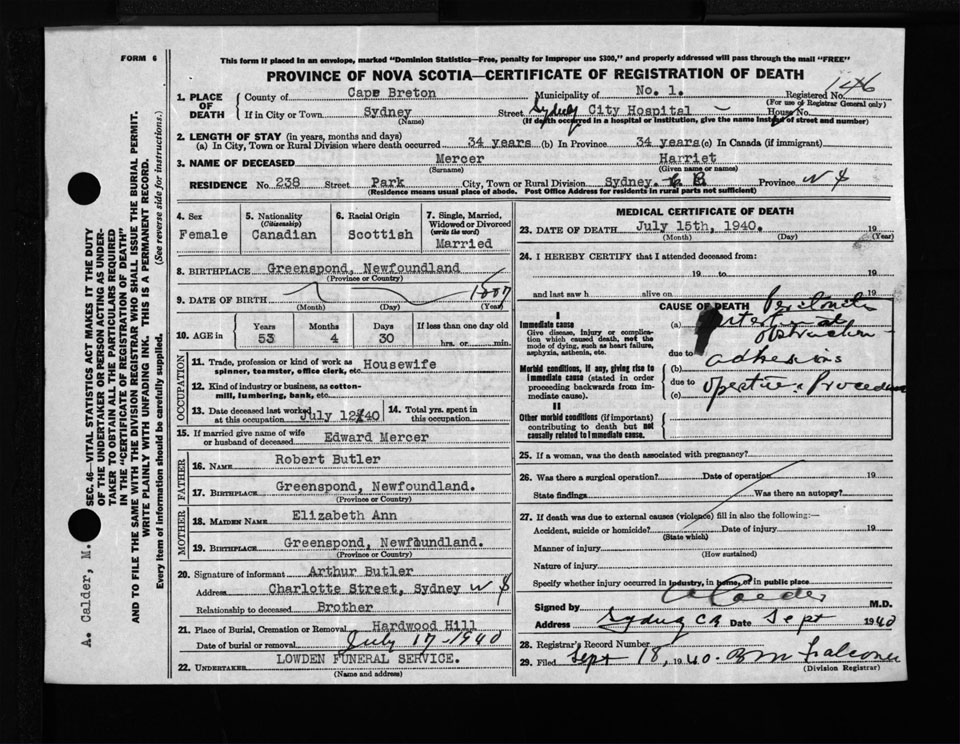 FORM 6
This form if enclosed in an envelope, marked "Dominion Statistics—Free, penalty for improper use $300," and properly addressed will pass through the mail "FREE"
PROVINCE OF NOVA SCOTIA—CERTIFICATE OF REGISTRATION OF DEATH
1. PLACE OF DEATH
County of Cape Breton Municipality of No. 1. Registered No. 146
(For use of Registrar General only)
If in City or Town Sydney Street Sydney City Hospital — House No.
(Name) (If death occurred in a hospital or institution, give the name instead of street and number)
2. LENGTH OF STAY (in years, months and days)
(a) In City, Town or Rural Division where death occurred 34 years (b) In Province 34 years (c) In Canada (if immigrant)
3. NAME OF DECEASED Mercer Harriet
(Surname) (Given name or names)
RESIDENCE No. 238 Street Park City, Town or Rural Division Sydney. C. B. Province N S
(Residence means usual place of abode. Post Office Address for residents in rural parts not sufficient)
4. Sex
Female
5. Nationality
(Citizenship)
Canadian
6. Racial Origin
Scottish
7. Single, Married, Widowed or Divorced
(write the word)
Married
8. BIRTHPLACE Greenspond, Newfoundland
(Province or Country)
9. DATE OF BIRTH 1887
(Month) (Day) (Year)
10. AGE in
Years Months Days If less than one day old
53 4 30 hrs. or min.
OCCUPATION
11. Trade, profession or kind of work as spinner, teamster, office clerk, etc. Housewife
12. Kind of industry or business, as cotton-mill, lumbering, bank, etc.
13. Date deceased last worked at this occupation July 12/40
14. Total yrs. spent in this occupation
15. If married give name of wife or husband of deceased Edward Mercer
FATHER
16. NAME Robert Butler
17. BIRTHPLACE Greenspond, Newfoundland.
(Province or Country)
MOTHER
18. MAIDEN NAME Elizabeth Ann
19. BIRTHPLACE Greenspond, Newfoundland.
(Province or Country)
20. Signature of informant Arthur Butler
Address Charlotte Street, Sydney N S
Relationship to deceased Brother
21. Place of Burial, Cremation or Removal Hardwood Hill
Date of burial or removal July 17-1940
22. UNDERTAKER LOWDEN FUNERAL SERVICE.
(Name and address)
MEDICAL CERTIFICATE OF DEATH
23. DATE OF DEATH July 15th, 1940. 19
(Month) (Day) (Year)
24. I HEREBY CERTIFY that I attended deceased from:
19 to 19
and last saw h alive on 19
CAUSE OF DEATH
I
Immediate cause
Give disease, injury or complication which caused death, not the mode of dying, such as heart failure, asphyxia, asthenia, etc.
(a) Peritonitis
obstruction
due to
adhesions
Morbid conditions, if any, giving rise to immediate cause (stated in order proceeding backwards from immediate cause).
(b)
due to
(c) operative Procedure
II
Other morbid conditions (if important) contributing to death but not causally related to immediate cause.
25. If a woman, was the death associated with pregnancy?
26. Was there a surgical operation? Date of operation 19
State findings Was there an autopsy?
27. If death was due to external causes (violence) fill in also the following:—
Accident, suicide or homicide? Date of injury 19
(State which)
Manner of injury
(How sustained)
Nature of injury
Specify whether injury occurred in industry, in home, or in public place
Signed by A Calder M.D.
Address Sydney CB Date Sept 1940
28. Registrar's Record Number
29. Filed Sept 18, 1940 (Division Registrar)
SEC. 46—VITAL STATISTICS ACT MAKES IT THE DUTY
OF THE UNDERTAKER OR PERSON ACTING AS UNDER-
TAKER TO OBTAIN ALL THE PARTICULARS REQUIRED
IN THE "CERTIFICATE OF REGISTRATION OF DEATH"
AND TO FILE THE SAME WITH THE DIVISION REGISTRAR WHO SHALL ISSUE THE BURIAL PERMIT.
WRITE PLAINLY WITH UNFADING INK. THIS IS A PERMANENT RECORD.
Every item of information should be carefully supplied. (See reverse side for instructions.)
A. Calder, M.